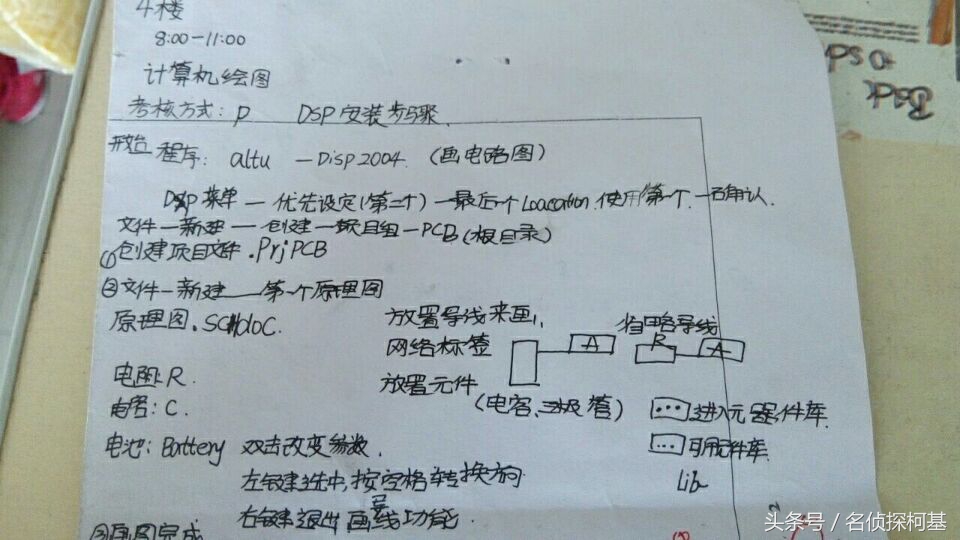 4楼
8:00-11:00
计算机绘图
考核方式: P DSP安装步骤.
开始程序: altu — Disp2004. (画电路图)
DSP菜单 — 优先设定(第二个) — 最后个Loacation 使用第一个. — 确认.
文件 — 新建 — 创建 — 项目组 — PCB(根目录)
①创建项目文件 .PrjPCB
②文件 — 新建 — 第一个原理图
原理图. SCHDOC. 放置导线来画,
网络标签 A 省略导线 R A
电阻: R. 放置元件
电容: C. (电容、三极管) ... 进入元器件库.
电池: Battery 双击改变参数. ... 可用元件库.
左键选中, 按空格转换方向 Lib
右键退出画导线功能.
③画图完成
Back
头条号 / 名侦探柯基